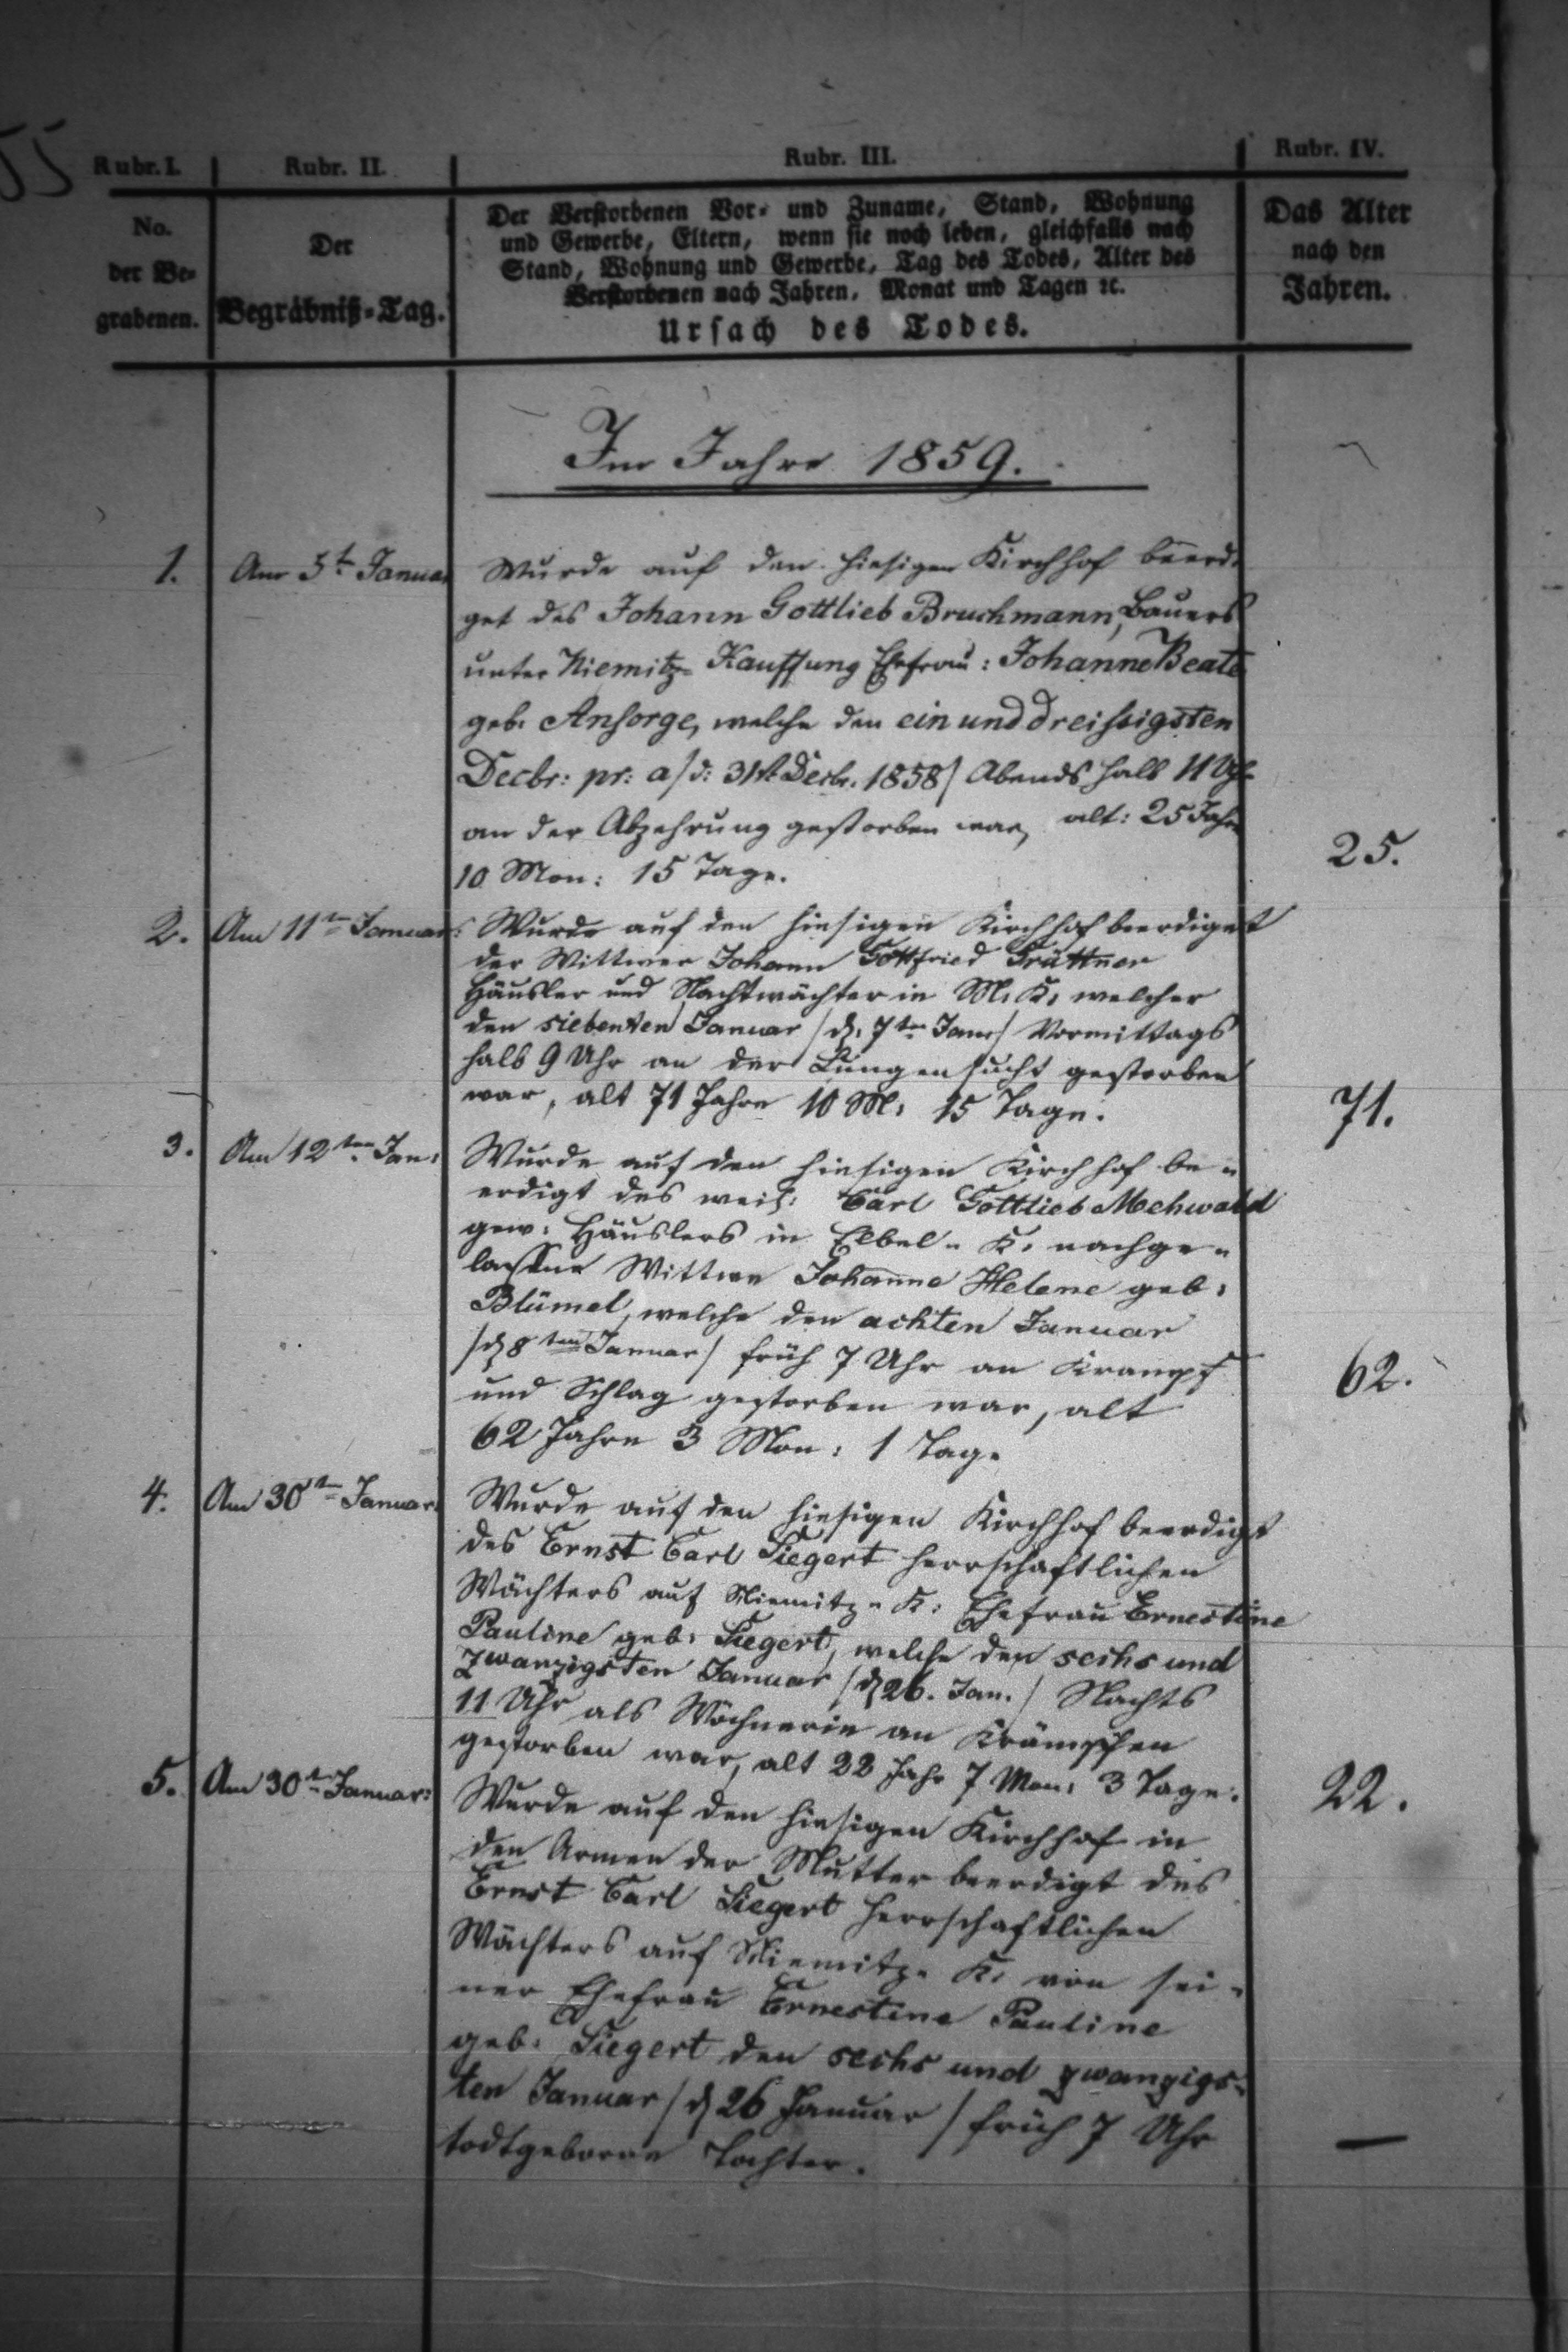 55
Rubr. I. Rubr. II. Rubr. III. Rubr. IV.
No.
der Be-
grabenen.
Der
Begräbniß-Tag.
Der Verstorbenen Vor- und Zuname, Stand, Wohnung
und Gewerbe, Eltern, wenn sie noch leben, gleichfalls nach
Stand, Wohnung und Gewerbe, Tag des Todes, Alter des
Verstorbenen nach Jahren, Monat und Tagen ꝛc.
Ursach des Todes.
Das Alter
nach den
Jahren.
Im Jahre 1859.
1. Am 5t Januar Wurde auf den hiesigen Kirchhof beerdi
get des Johann Gottlieb Bruchmann, Bauers
unter Niemitz- Kauffung Ehefrau: Johanne Beate
geb. Ansorge, welche den ein und dreissigsten
Decbr: pr: a/d: 31t Decbr. 1858/ Abends halb 11 Uhr
an der Abzehrung gestorben war, alt: 25 Jahre
10 Mon: 15 Tage.
25.
2. Am 11ten Januar: Wurde auf den hiesigen Kirchhof beerdiget
der Wittwer Johann Gottfried Grüttner
Häusler und Nachtwächter in M. K. welcher
den siebenten Januar /d. 7ten Jan:/ Vormittags
halb 9 Uhr an der Lungensucht gestorben
war, alt 71 Jahre 10 M: 15 Tage.
71.
3. Am 12ten Jan: Wurde auf den hiesigen Kirchhof be-
erdigt des weil: Carl Gottlieb Mehwald
gew: Häuslers in Elbel- K. nachge-
lassene Wittwe Johanne Helene geb:
Blümel, welche den achten Januar
/d 8ten Januar/ früh 7 Uhr an Krampf
und Schlag gestorben war, alt
62 Jahre 3 Mon: 1 Tag.
62.
4. Am 30ten Januar. Wurde auf den hiesigen Kirchhof beerdigt
des Ernst Carl Siegert herrschaftlichen
Wächters auf Niemitz- K: Ehefrau Ernestine
Pauline geb: Siegert, welche den sechs und
zwanzigsten Januar /d 26. Jan./ Nachts
11 Uhr als Wöchnerin an Krämpfen
gestorben war, alt 22 Jahr 7 Mon: 3 Tage.
22.
5. Am 30t Januar: Wurde auf den hiesigen Kirchhof in
den Armen der Mutter beerdigt des
Ernst Carl Siegert herrschaftlichen
Wächters auf Niemitz- K. von sei-
ner Ehefrau Ernestine Pauline
geb: Siegert den sechs und zwanzigs-
ten Januar /d 26 Januar/ früh 7 Uhr
todtgeborne Tochter.
—